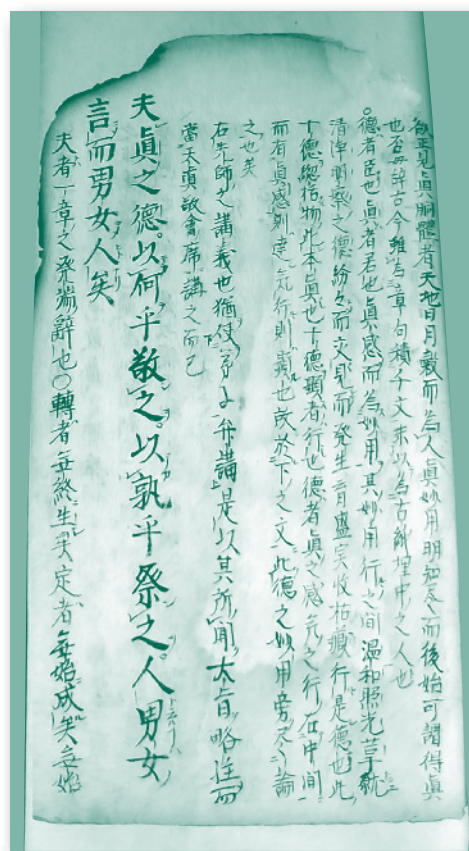 欲正見眞胴體者天地日月穀而為人眞妙用明知[尽]而後始可謂得眞
也否毋辞古今雖為章句積千文未以為古辞理中之人也
德者臣也眞者君也眞感而為妙用其妙用行之間温和照光
清浄明察之德紛々而交見而發生育盛実收枯 行是德也此
十德 枯物此本眞也十德顕者行也德者眞之感気之行在中間
而有眞感則速気行則 也故於下之文此德之妙用旁尽論
之也矣
右先師之講義也猶使弟子弁講是以其所聞太旨略注而
當太眞敬會席講之而已
夫眞之德以何乎敬之以孰乎祭之人男女
言而男女人矣
夫者一章之発端辞也○轉者無終生矣定者無始成矣無始